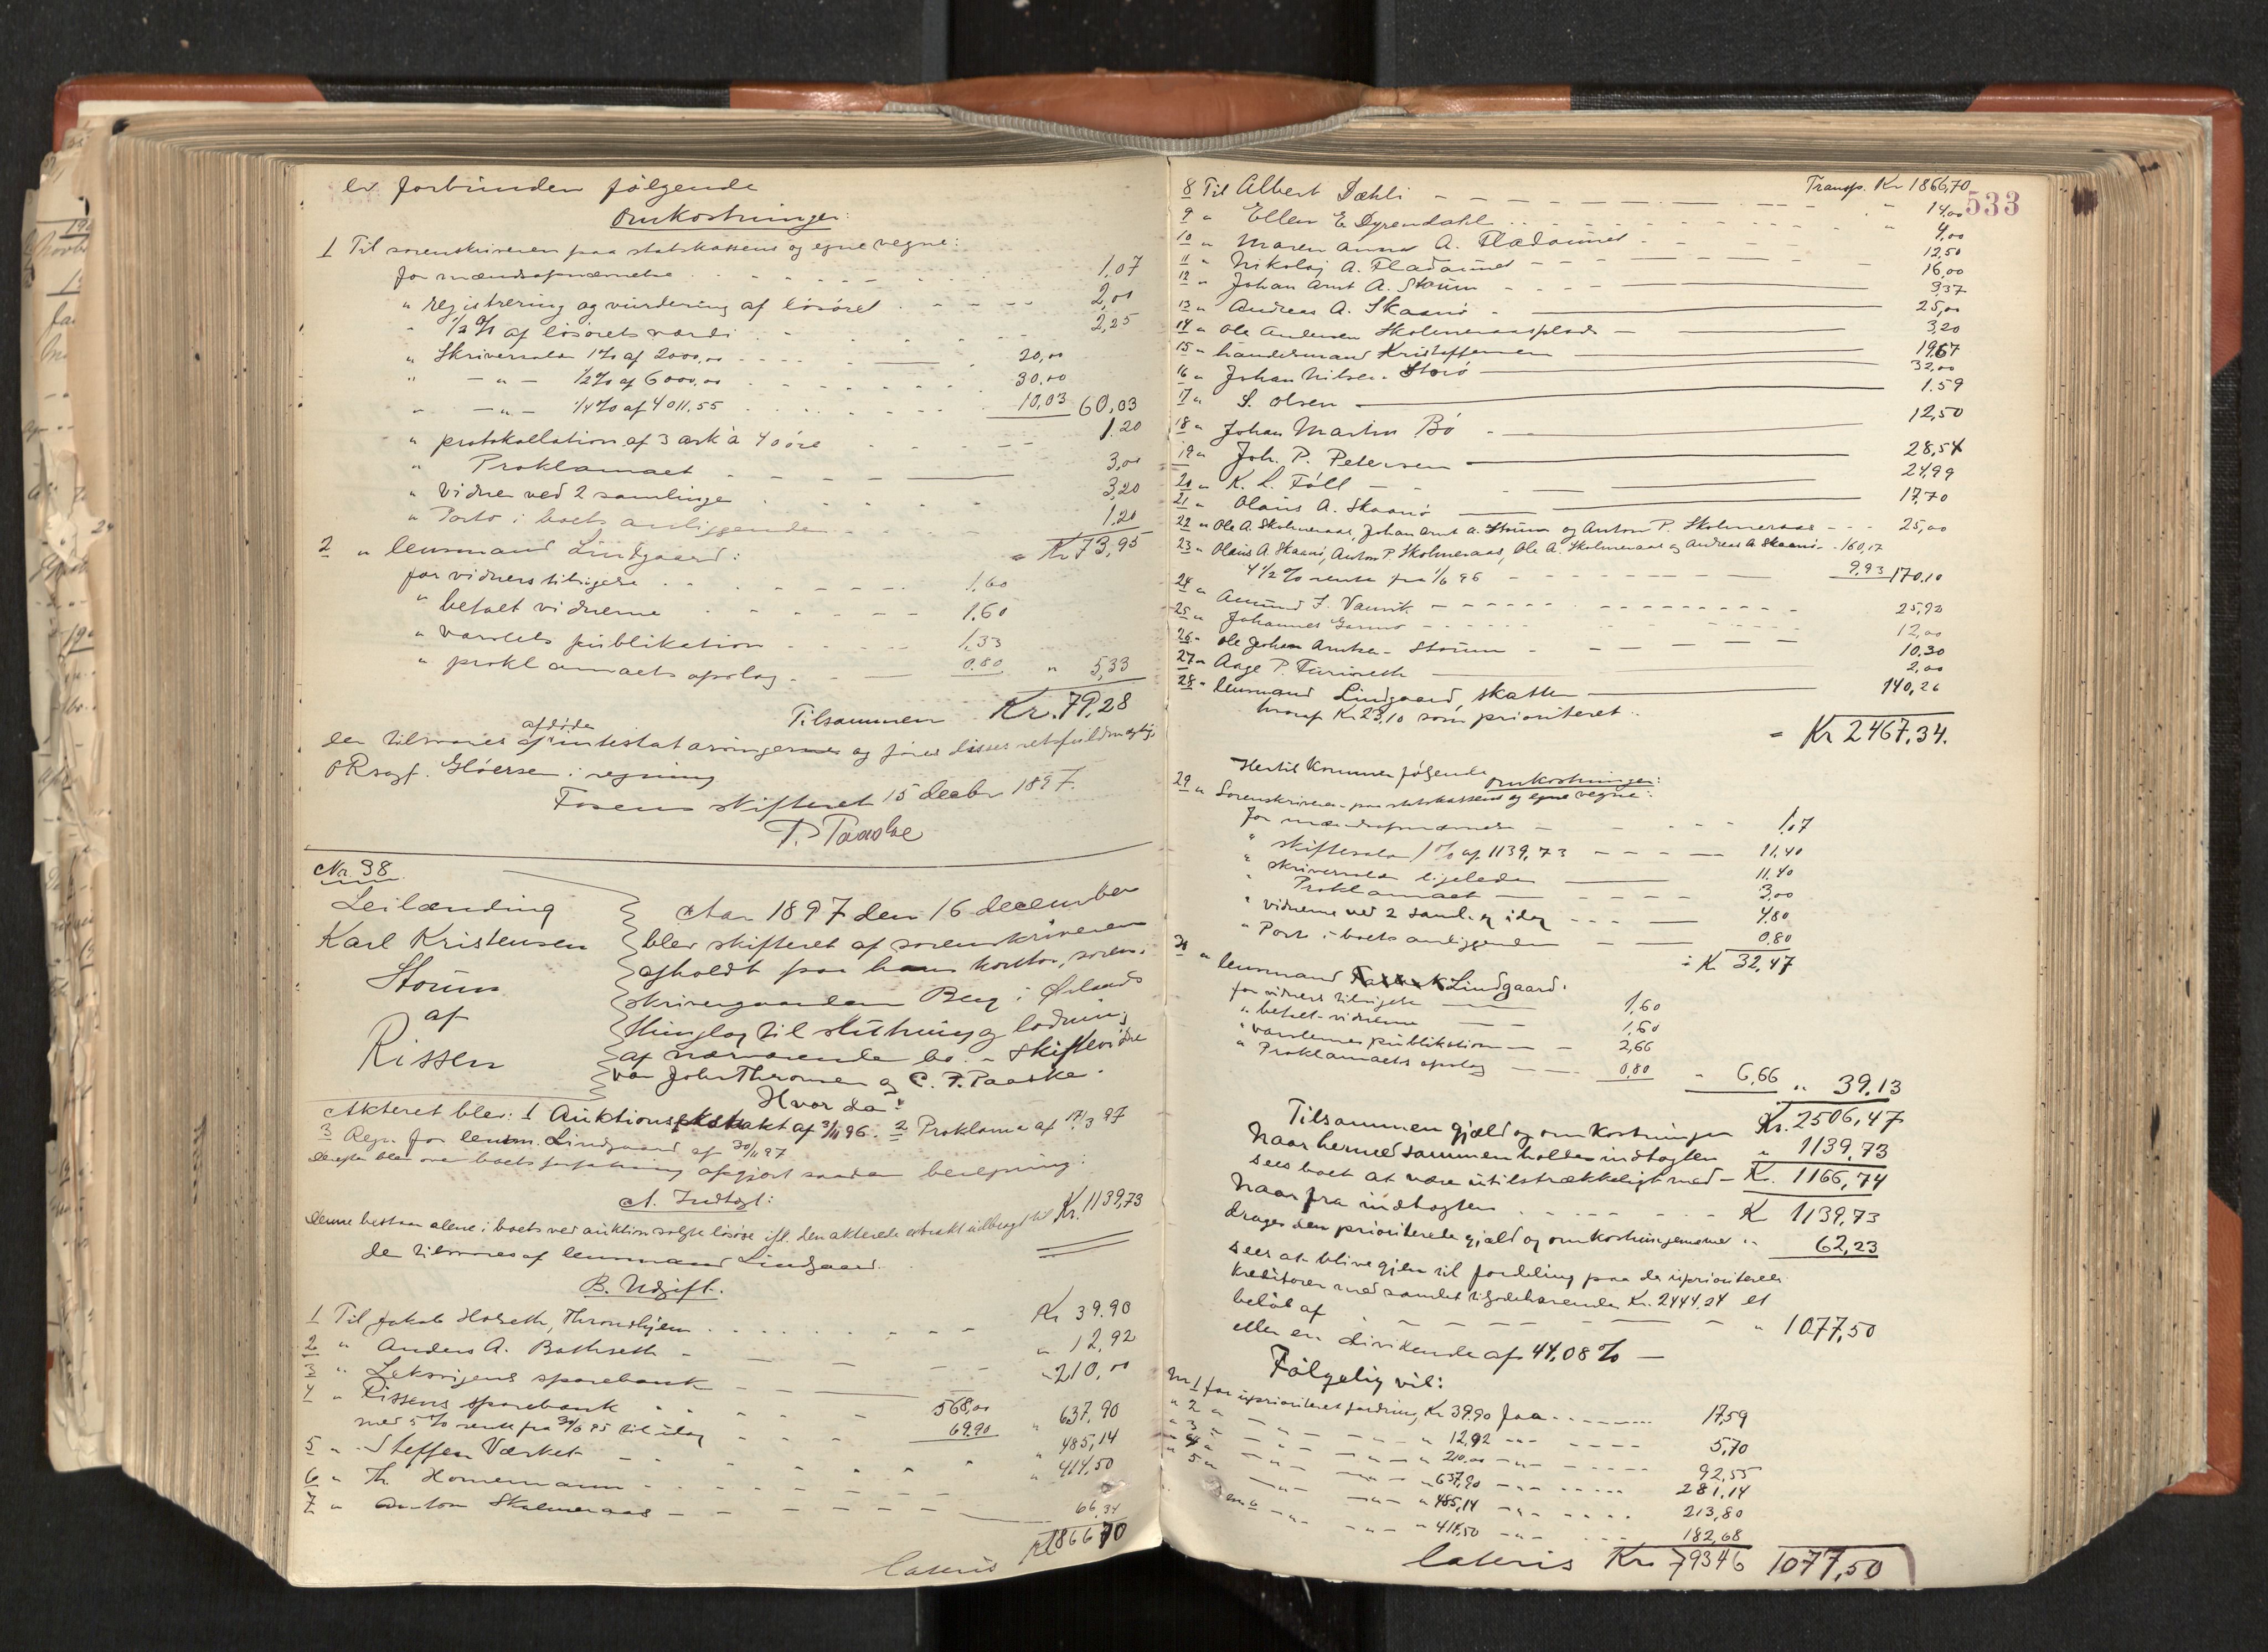 er forbunden følgende
Omkostninger:
1 Til sorenskriveren paa statskassens og egne vegne:
for mændsopnævnelse 1,07
" registrering og vurdering af løsøret 2,00
" 1/2 % af løsørets værdi 2,25
" Skriversalær 1% af 2000,00 20,00
" — " — 1/2% af 6000,00 30,00
" — " — 1/4% af 4011.55 10,03 60,03
" protokollation af 3 ark à 40 øre 1.20
" Proklamaet 3,00
" vidner ved 2 samlinger 3,20
" Porto i boets anliggender 1.20
= Kr 73,95
2 " lensmand Lindgaard:
for vidners tilsigelse 1,60
" betalt vidnerne 1,60
" varslets publikation 1,33
" proklamaets opslag 0.80 " 5,33
Tilsammen Kr. 79,28
der tilsvares af afdødes intestatarvinger og føres disses retsfuldmægtig,
ORsagf. Gløersen i regning
Fosens skifteret 15 decbr 1897.
P. Paaske
No. 38.
Leilænding
Karl Kristensen
Storün
af
Rissen
Aar 1897 den 16 december
blev skifteret af sorenskriveren
afholdt paa hans kontor, soren-
skrivergaarden Berg i Ørlands
thinglag til slutning og lodning
af nærværende bo. - Skiftevidner
var John Thronsen og C. F. Paaske.
Hvorda:
Akteret blev: 1 Auktionsekstrakt af 3/11 96. 2 Proklama af 17/3 97
3 Regn. for lensm. Lindgaard af 30/11 97
Derefter blev over boets forfatning afgjort saadan beregning:
A. Indtægt:
Denne bestaar alene i boets ved auktion solgte løsøre ifl. den akterede extrakt udbragt til Kr. 1139,73
der tilsvares af lensmand Lindgaard.
B. Udgift.
1 Til Jakob Holseth, Throndhjem Kr 39.90
2 " Anders A. Bathseth " 12,92
3 " Leksvigens sparebank " 210,00
4 " Rissens sparebank 568,00
med 5% rente fra 30/6 95 til idag 69.90 " 637,90
5 " Steffen Værket " 485,14
6 " Th. Hornemann " 414,50
7 " Anton Skolmeraas 66,34
lateris Kr 1866 70
533
Transp. Kr 1866,70
8 Til Albert Dæhli " 14,00
9 " Ellen E Dyrendahl " 4,00
10 " Maren Anna A. Fladaunet 12,50
11 " Nikolaj A. Fladaunet 16,00
12 " Johan Arnt A. Storün 9,37
13 " Andreas A. Skaanø 25,00
14 " Ole Andersen Skolmeraasplads 3,20
15 " handelsmand Kristoffersen 19,67
16 " Johan Nilsen Storø 32,00
17 " S. Olsen 1.59
18 " Johan Martin Bø 12,50
19 " Joh. P. Petersen 28,54
20 " K. L. Føll 24,99
21 " Olaus A. Skaanø 17,70
22 " Ole A. Skolmeraas, Johan Arnt A. Storün og Anton P. Skolmeraas 25,00
23 " Olaus A Skaanø, Anton P Skolmeraas, Ole A. Skolmeraas og Andreas A Skaanø 160,17
4 1/2 % rente fra 1/6 96 9,93 170.10
24 " Amund J. Vanvik 25,92
25 " Johannes Garmo 12,00
26 " Ole Johan Arntsen Storün 10,30
27 " Aage P. Furuseth 2,00
28 " lensmand Lindgaard, skatter 140,26
hvoraf Kr 23,10 som prioriteret.
= Kr 2467,34.
Hertil kommer følgende omkostninger:
29 " Sorenskriveren paa statskassens og egne vegne:
for mændsopnævnelse 1,07
" skiftesalær 1% af 1139,73 11,40
" skriversalær ligeledes 11,40
" Proklamaet 3,00
" vidnerne ved 2 saml. og idag 4,80
" Porto i boets anliggender 0,80
= Kr 32,47
30 " lensmand Lindgaard:
for vidners tilsigelse 1,60
" betalt vidnerne 1,60
" varslernes publikation 2,66
" Proklamaets opslag 0,80 " 6,66 " 39,13
Tilsammen gjæld og omkostninger Kr. 2506,47
Naar hermed sammenholdes indtægten " 1139,73
sees boet at være utilstrækkeligt med Kr. 1166,74
Naar fra indtægten K 1139,73
drages den prioriterede gjæld og omkostningerne " 62,23
sees at blive igjen til fordeling paa de uprioriterede
kreditorer med samlet tilgodehavende Kr. 2444,24 et
beløb af " 1077,50
eller en dividende af 44,08 % —
Følgelig vil:
No 1 for uprioriteret fordring, Kr 39.90 faa 17,59
" 2 " — " — " 12,92 — " — 5,70
" 3 " — " — " 210.00 — " — 92,55
" 4 " — " — " 637,90 — " — 281,14
" 5 " — " — " 485,14 — " — 213,80
6 " — " — " 414,50 — " — 182,68
lateris Kr 793 46 1077,50